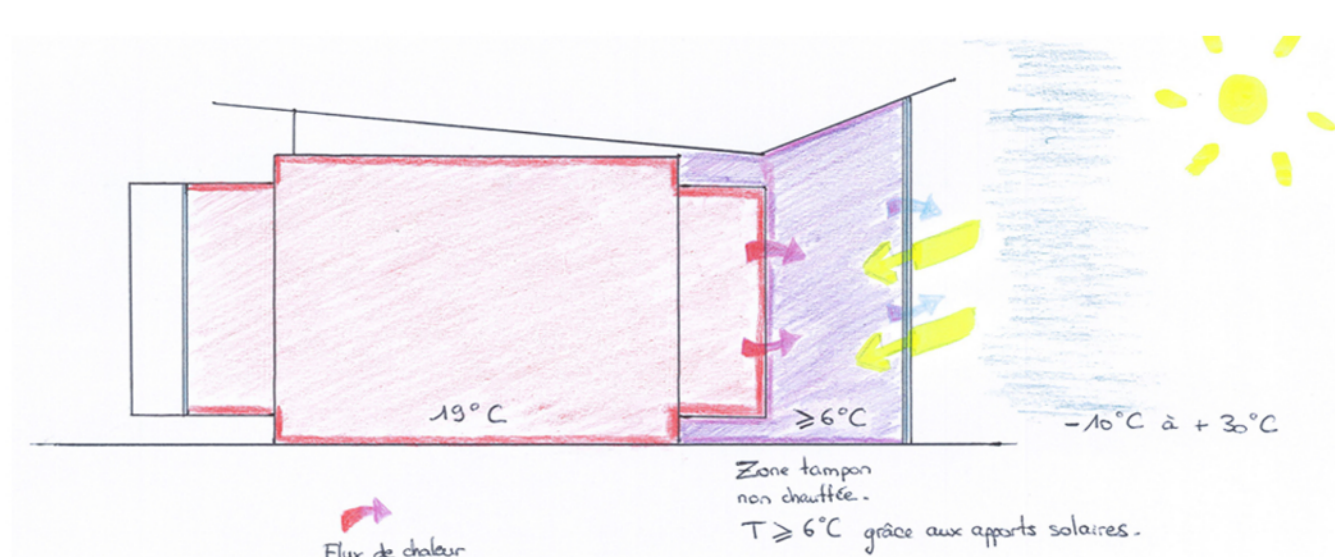 19°C
≥6°C
-10°C à + 30°C
Zone tampon
non chauffée.
T ≥ 6°C grâce aux apports solaires.
Flux de chaleur